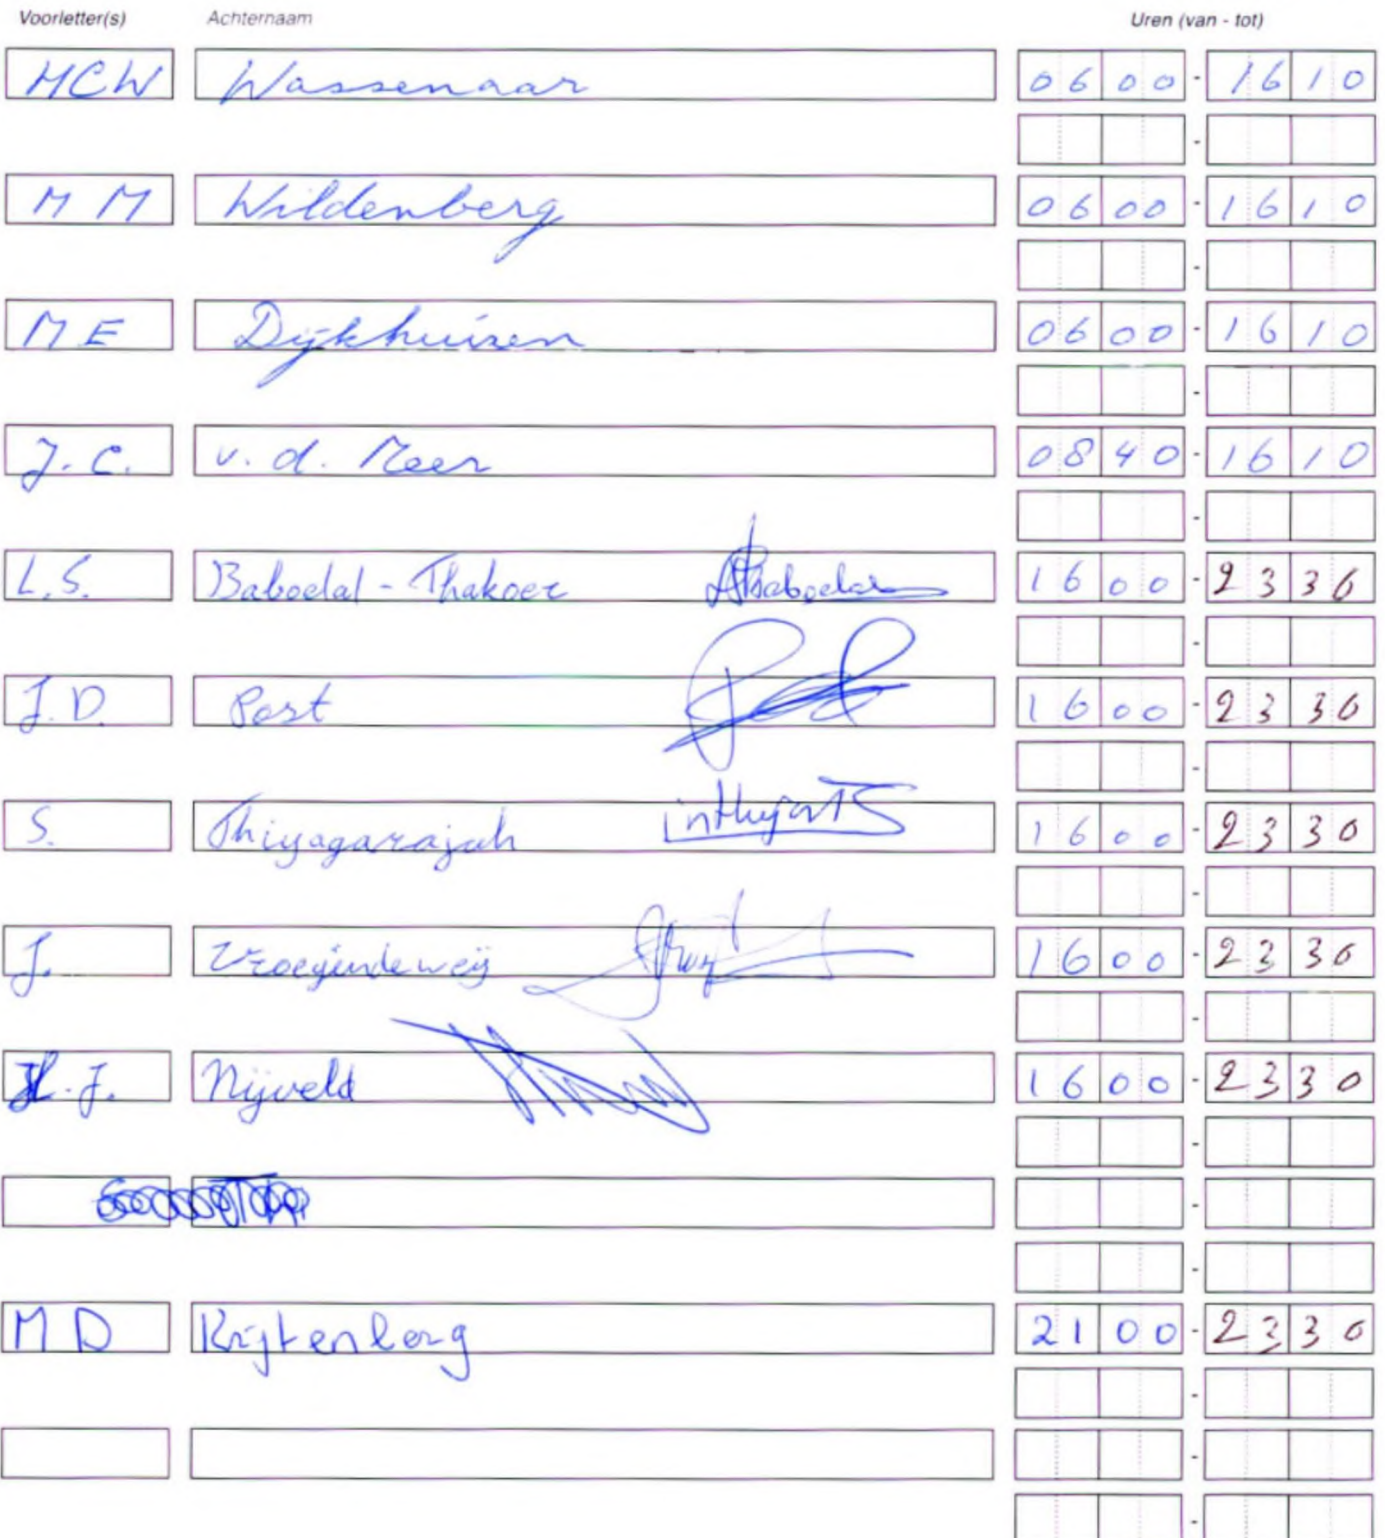 Voorletter(s) Achternaam Uren (van - tot)
MCW Wassenaar 0600 - 1610
-
M M Wildenberg 0600 - 1610
-
M E Dijkhuizen 0600 - 1610
-
J. C. v. d. Meer 0840 - 1610
-
L.S. Baboelal - Thakoer 1600 - 2330
-
J.D. Post 1600 - 2330
-
S. Thiyagarajah 1600 - 2330
-
J. Vroegindeweij 1600 - 2330
-
J. Nijveld 1600 - 2330
-
-
-
M D 2100 - 2330
-
-
-